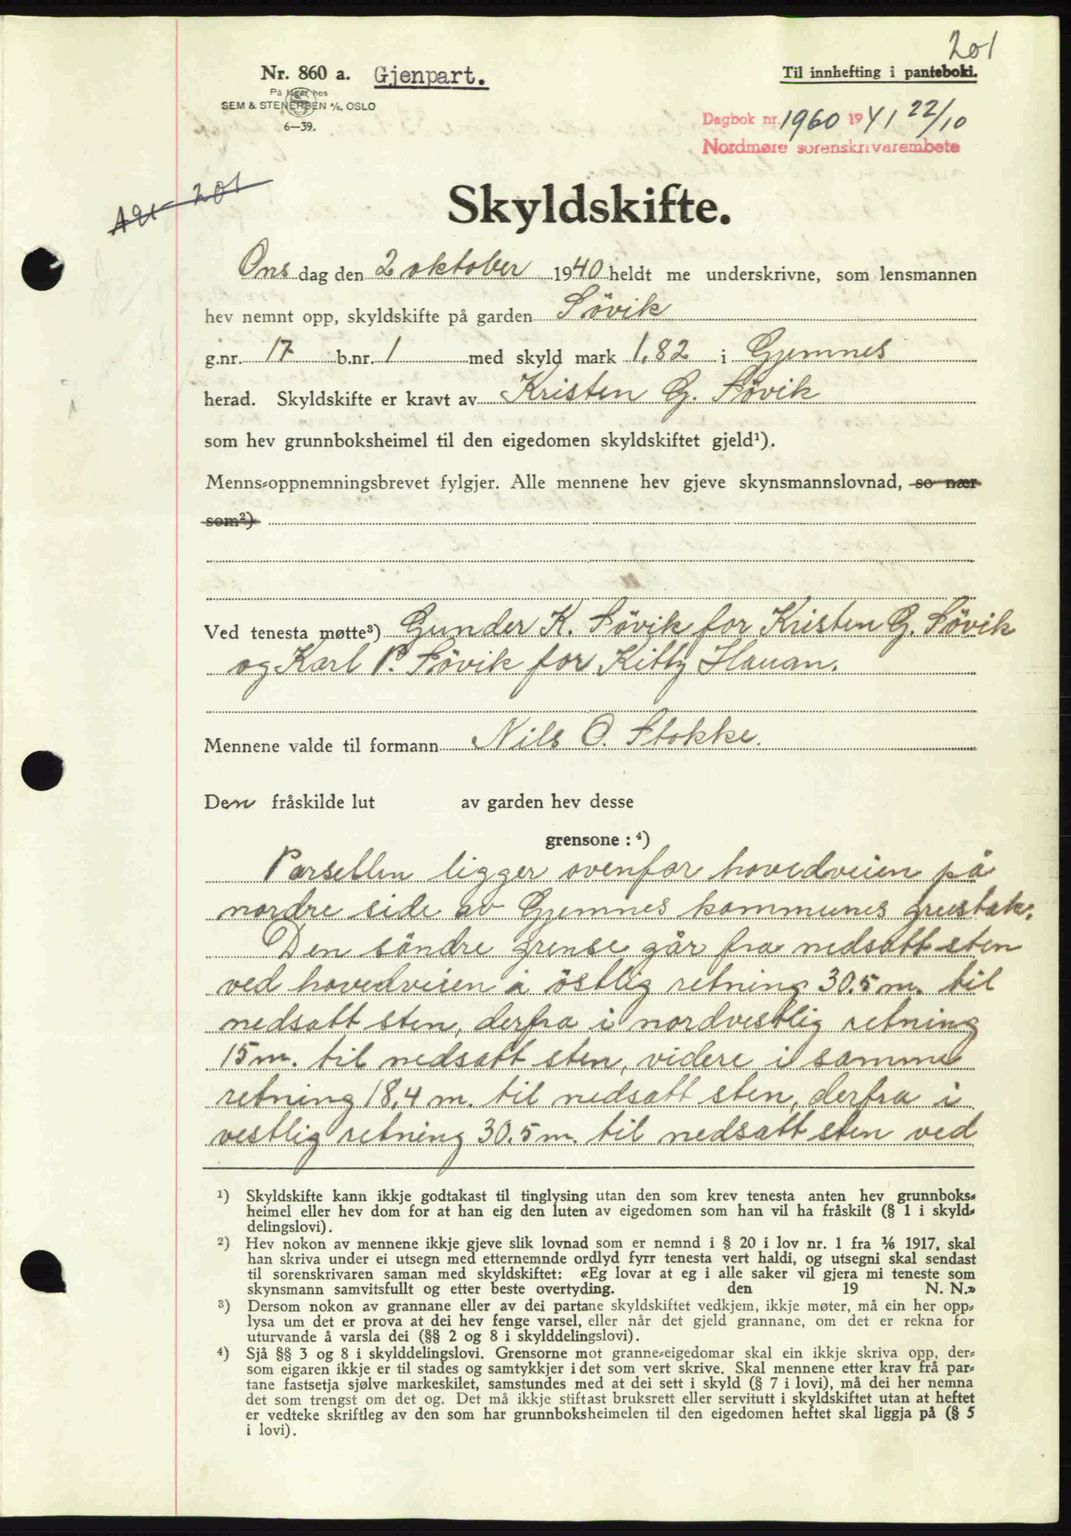 201
Nr. 860 a. Gjenpart. Til innhefting i panteboki.
På lager hos
SEM & STENERSEN A/S, OSLO
6—39.
Dagbok nr. 1960 1941 22/10
Nordmøre sorenskrivarembete
A91 - 201
Skyldskifte.
Onsdag den 2 oktober 1940 heldt me underskrivne, som lensmannen
hev nemnt opp, skyldskifte på garden Søvik
g.nr. 17 b.nr. 1 med skyld mark 1,82 i Gjemnes
herad. Skyldskifte er kravt av Kristen G. Søvik
som hev grunnboksheimel til den eigedomen skyldskiftet gjeld¹).
Menns-oppnemningsbrevet fylgjer. Alle mennene hev gjeve skynsmannslovnad, so nær
som²)
Ved tenesta møtte³) Gunder K. Søvik for Kristen G. Søvik
og Karl P. Søvik for Kitty Hauan.
Mennene valde til formann Nils O. Stokke.
Den fråskilde lut av garden hev desse
grensone : ⁴)
Parsellen ligger ovenfor hovedveien på
nordre side av Gjemnes kommunes grustak.
Den söndre grense går fra nedsatt sten
ved hovedveien i östlig retning 30.5 m. til
nedsatt sten, derfra i nordvestlig retning
15 m. til nedsatt sten, videre i samme
retning 18,4 m. til nedsatt sten, derfra i
vestlig retning 30.5 m. til nedsatt sten ved
¹) Skyldskifte kann ikkje godtakast til tinglysing utan den som krev tenesta anten hev grunnboks-
heimel eller hev dom for at han eig den luten av eigedomen som han vil ha fråskilt (§ 1 i skyld-
delingslovi).
²) Hev nokon av mennene ikkje gjeve slik lovnad som er nemnd i § 20 i lov nr. 1 fra 1/6 1917, skal
han skriva under ei utsegn med etternemnde ordlyd fyrr tenesta vert haldi, og utsegni skal sendast
til sorenskrivaren saman med skyldskiftet: «Eg lovar at eg i alle saker vil gjera mi teneste som
skynsmann samvitsfullt og etter beste overtyding. den 19 N. N.»
³) Dersom nokon av grannane eller av dei partane skyldskiftet vedkjem, ikkje møter, må ein her opp-
lysa um det er prova at dei hev fenge varsel, eller når det gjeld grannane, om det er rekna for
uturvande å varsla dei (§§ 2 og 8 i skylddelingslovi).
⁴) Sjå §§ 3 og 8 i skylddelingslovi. Grensorne mot granne-eigedomar skal ein ikkje skriva opp, der-
som eigaren ikkje er til stades og samtykkjer i det som vert skrive. Skal mennene etter krav frå par-
tane fastsetja sjølve markeskilet, samstundes med at dei sett i skyld (§ 7 i lovi), må dei her nemna
det som trengst om det og. Det må ikkje stiftast bruksrett eller servitutt i skyldskiftet utan at heftet
er vedteke skriftleg av den som har grunnboksheimelen til den eigedomen heftet skal liggja på (§ 5
i lovi).